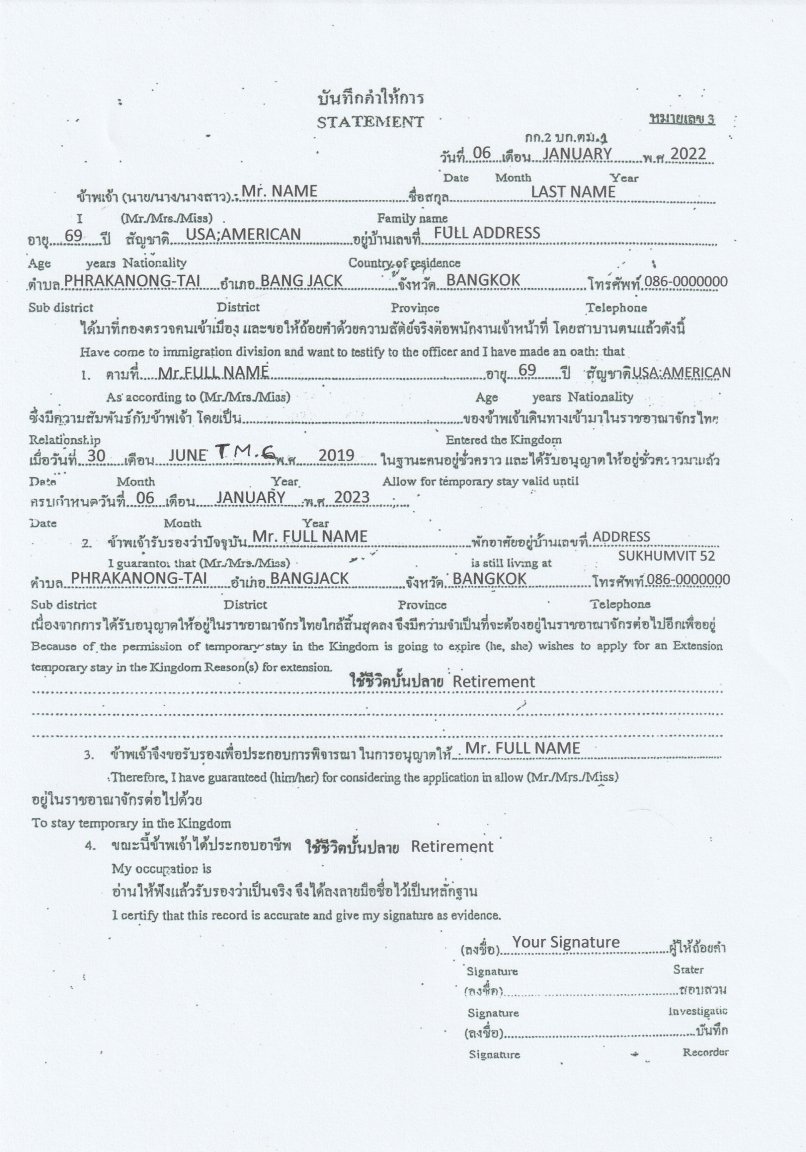 บันทึกคำให้การ
STATEMENT
หมายเลข 3
กก.2 บก.ตม.1
วันที่ 06 เดือน JANUARY พ.ศ 2022
Date Month Year
ข้าพเจ้า (นาย/นาง/นางสาว) : Mr. NAME ชื่อสกุล LAST NAME
I (Mr./Mrs./Miss) Family name
อายุ 69 ปี สัญชาติ USA;AMERICAN อยู่บ้านเลขที่ FULL ADDRESS
Age years Nationality Country of residence
ตำบล PHRAKANONG-TAI อำเภอ BANG JACK จังหวัด BANGKOK โทรศัพท์ 086-0000000
Sub district District Province Telephone
ได้มาที่กองตรวจคนเข้าเมือง และขอให้ถ้อยคำด้วยความสัตย์จริงต่อพนักงานเจ้าหน้าที่ โดยสาบานตนแล้วดังนี้
Have come to immigration division and want to testify to the officer and I have made an oath: that
1. ตามที่ Mr.FULL NAME อายุ 69 ปี สัญชาติ USA;AMERICAN
As according to (Mr./Mrs./Miss) Age years Nationality
ซึ่งมีความสัมพันธ์กับข้าพเจ้า โดยเป็น ของข้าพเจ้าเดินทางเข้ามาในราชอาณาจักรไทย
Relationship Entered the Kingdom
เมื่อวันที่ 30 เดือน JUNE T M.6 พ.ศ 2019 ในฐานะคนอยู่ชั่วคราว และได้รับอนุญาตให้อยู่ชั่วคราวมาแล้ว
Date Month Year Allow for temporary stay valid until
ครบกำหนดวันที่ 06 เดือน JANUARY พ.ศ 2023
Date Month Year
2. ข้าพเจ้ารับรองว่าปัจจุบัน Mr. FULL NAME พักอาศัยอยู่บ้านเลขที่ ADDRESS
I guarantor that (Mr./Mrs./Miss) is still living at SUKHUMVIT 52
ตำบล PHRAKANONG-TAI อำเภอ BANGJACK จังหวัด BANGKOK โทรศัพท์ 086-0000000
Sub district District Province Telephone
เนื่องจากการได้รับอนุญาตให้อยู่ในราชอาณาจักรไทยใกล้สิ้นสุดลง จึงมีความจำเป็นที่จะต้องอยู่ในราชอาณาจักรต่อไปอีกเพื่ออยู่
Because of the permission of temporary stay in the Kingdom is going to expire (he, she) wishes to apply for an Extension
temporary stay in the Kingdom Reason(s) for extension.
ใช้ชีวิตบั้นปลาย Retirement
3. ข้าพเจ้าจึงขอรับรองเพื่อประกอบการพิจารณา ในการอนุญาตให้ Mr. FULL NAME
Therefore, I have guaranteed (him/her) for considering the application in allow (Mr./Mrs./Miss)
อยู่ในราชอาณาจักรต่อไปด้วย
To stay temporary in the Kingdom
4. ขณะนี้ข้าพเจ้าได้ประกอบอาชีพ ใช้ชีวิตบั้นปลาย Retirement
My occupation is
อ่านให้ฟังแล้วรับรองว่าเป็นจริง จึงได้ลงลายมือชื่อไว้เป็นหลักฐาน
I certify that this record is accurate and give my signature as evidence.
(ลงชื่อ) Your Signature ผู้ให้ถ้อยคำ
Signature Stater
(ลงชื่อ) สอบสวน
Signature Investigatic
(ลงชื่อ) บันทึก
Signature Recorder